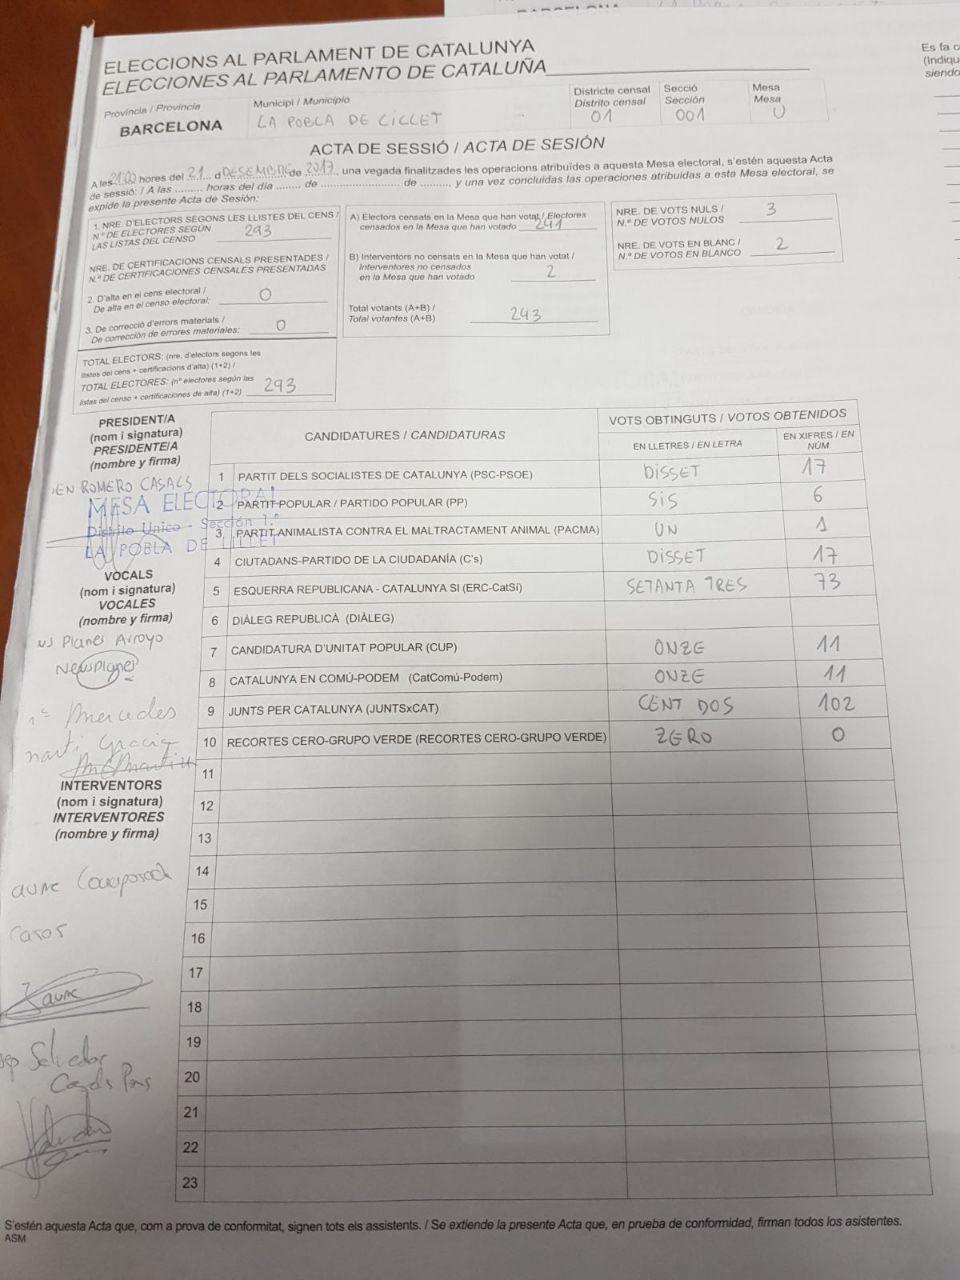 ELECCIONS AL PARLAMENT DE CATALUNYA
ELECCIONES AL PARLAMENTO DE CATALUÑA
Província / Provincia
BARCELONA
Municipi / Municipio
LA POBLA DE LILLET
Districte censal
Distrito censal
01
Secció
Sección
001
Mesa
Mesa
U
Es fa c
(Indiqu
siendo
ACTA DE SESSIÓ / ACTA DE SESIÓN
A les 21:00 hores del 21 d DESEMBRE de 2017, una vegada finalitzades les operacions atribuïdes a aquesta Mesa electoral, s'estén aquesta Acta
de sessió: / A las ......... horas del día ........ de .......................... de ........., y una vez concluidas las operaciones atribuidas a esta Mesa electoral, se
expide la presente Acta de Sesión:
1. NRE. D'ELECTORS SEGONS LES LLISTES DEL CENS /
N.º DE ELECTORES SEGÚN
LAS LISTAS DEL CENSO
293
NRE. DE CERTIFICACIONS CENSALS PRESENTADES /
N.º DE CERTIFICACIONES CENSALES PRESENTADAS
2. D'alta en el cens electoral /
De alta en el censo electoral:
0
3. De correcció d'errors materials /
De corrección de errores materiales:
0
TOTAL ELECTORS: (nre. d'electors segons les
llistes del cens + certificacions d'alta) (1+2) /
TOTAL ELECTORES: (nº electores según las
listas del censo + certificaciones de alta) (1+2)
293
A) Electors censats en la Mesa que han votat / Electores
censados en la Mesa que han votado 241
B) Interventors no censats en la Mesa que han votat /
Interventores no censados
en la Mesa que han votado
2
Total votants (A+B) /
Total votantes (A+B)
243
NRE. DE VOTS NULS /
N.º DE VOTOS NULOS
3
NRE. DE VOTS EN BLANC /
N.º DE VOTOS EN BLANCO
2
PRESIDENT/A
(nom i signatura)
PRESIDENTE/A
(nombre y firma)
EN ROMERO CASALS
MESA ELECTORAL
Distrito Unico - Sección 1.ª
LA POBLA DE LILLET
VOCALS
(nom i signatura)
VOCALES
(nombre y firma)
us Planes Arroyo
Neusplanes
Mercedes
marti Gracia
INTERVENTORS
(nom i signatura)
INTERVENTORES
(nombre y firma)
Jaume
Salvador
Pons
CANDIDATURES / CANDIDATURAS
VOTS OBTINGUTS / VOTOS OBTENIDOS
EN LLETRES / EN LETRA
EN XIFRES / EN
NÚM.
1 PARTIT DELS SOCIALISTES DE CATALUNYA (PSC-PSOE) DISSET 17
2 PARTIT POPULAR / PARTIDO POPULAR (PP) SIS 6
3 PARTIT ANIMALISTA CONTRA EL MALTRACTAMENT ANIMAL (PACMA) UN 1
4 CIUTADANS-PARTIDO DE LA CIUDADANÍA (C's) DISSET 17
5 ESQUERRA REPUBLICANA - CATALUNYA SI (ERC-CatSí) SETANTA TRES 73
6 DIÀLEG REPUBLICÀ (DIÀLEG)
7 CANDIDATURA D'UNITAT POPULAR (CUP) ONZE 11
8 CATALUNYA EN COMÚ-PODEM (CatComú-Podem) ONZE 11
9 JUNTS PER CATALUNYA (JUNTSxCAT) CENT DOS 102
10 RECORTES CERO-GRUPO VERDE (RECORTES CERO-GRUPO VERDE) ZERO 0
11
12
13
14
15
16
17
18
19
20
21
22
23
S'estén aquesta Acta que, com a prova de conformitat, signen tots els assistents. / Se extiende la presente Acta que, en prueba de conformidad, firman todos los asistentes.
ASM